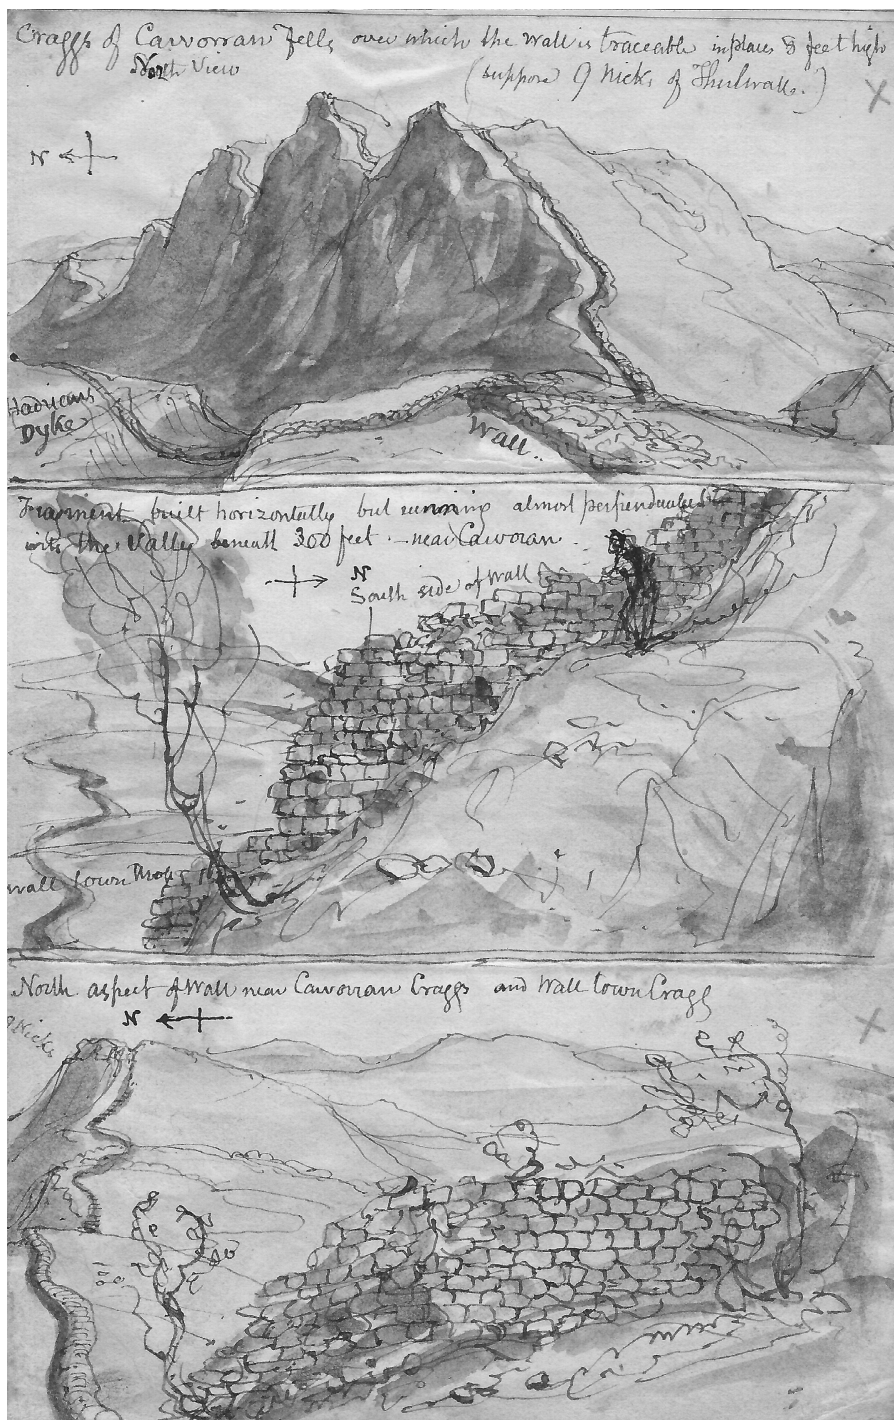 Craggs of Cawvorran Fells over which the wall is traceable in places 8 feet high
North View
(suppose 9 Nicks of Thirlwall.)
N
Hadrians
Dyke
Wall.
Fragment built horizontally but running almost perpendicular
into the Valley beneath 300 feet - near Cawvoran.
N
South side of Wall
Wall town
North aspect of Wall near Cawvorran Craggs and Wall town Cragg
N
9 Nicks